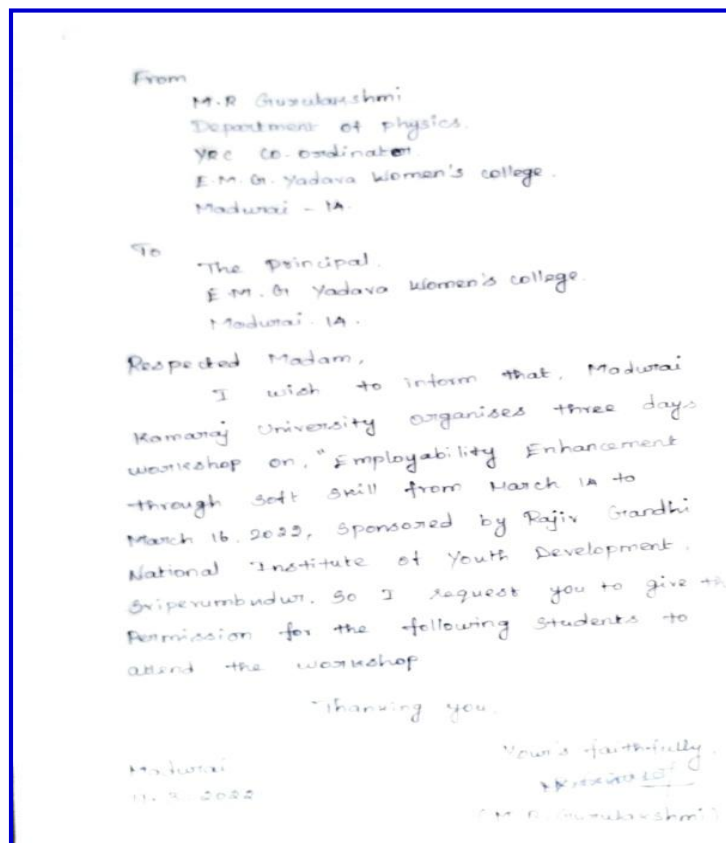 From
M.R Gurulakshmi
Department of physics.
YRC Co-ordinator.
E.M.G. Yadava Women's college.
Madurai - 14.
To
The Principal.
E.M.G Yadava Women's college.
Madurai. 14.
Respected Madam,
I wish to inform that, Madurai
Kamaraj University organises three days
workshop on, "Employability Enhancement
through soft skill from March 14 to
March 16. 2022, sponsored by Rajiv Gandhi
National Institute of Youth Development.
Sriperumbudur. So I request you to give th
Permission for the following students to
attend the workshop
Thanking you.
Your's faithfully,
Madurai
2022
(M.R. Gurulakshmi)